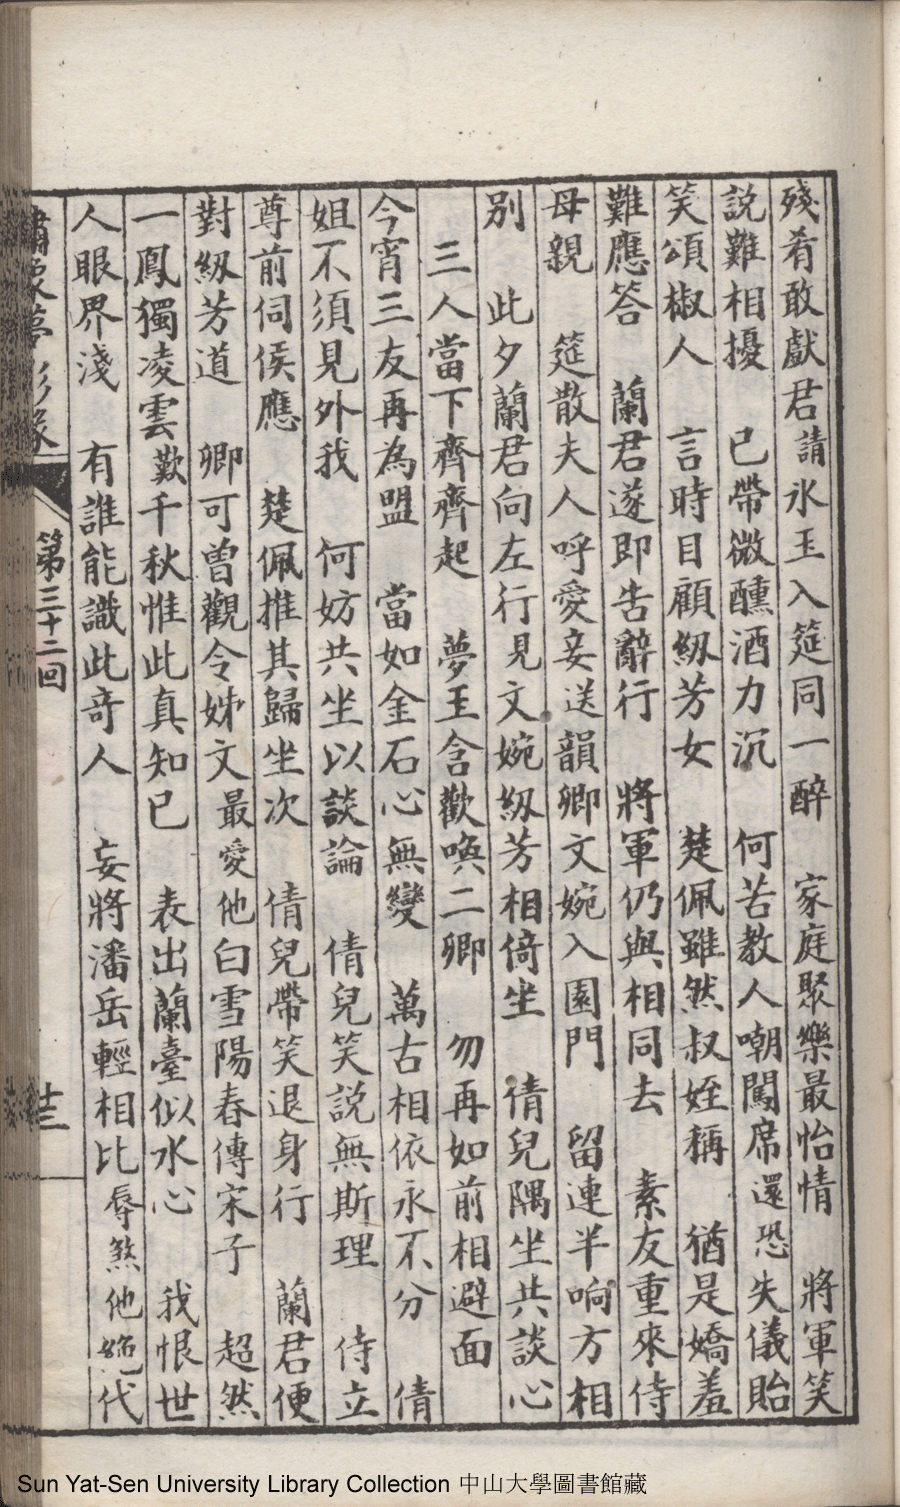 殘肴敢獻君請氷玉入筵同一醉　家庭聚樂最怡情　將軍笑
説難相擾　已帶微醺酒力沉　何苦教人嘲闖席還恐失儀貽
笑頌椒人　言時目顧紉芳女　楚佩雖然叔姪稱　猶是嬌羞
難應答　蘭君遂即告辭行　將軍仍與相同去　素友重來侍
母親　筵散夫人呼愛妾送韻卿文婉入園門　留連半响方相
別　此夕蘭君向左行見文婉紉芳相倚坐　倩兒隅坐共談心
三人當下齊齊起　夢玉含歡喚二卿　勿再如前相避面
今宵三友再為盟　當如金石心無變　萬古相依永不分　倩
姐不須見外我　何妨共坐以談論　倩兒笑説無斯理　侍立
尊前伺侯應　楚佩推其歸坐次　倩兒帶笑退身行　蘭君便
對紉芳道　卿可曾觀令姊文最愛他白雪陽春傳宋子　超然
一鳳獨凌雲歎千秋惟此真知己　表出蘭臺似水心　我恨世
人眼界淺　有誰能識此奇人　妄將潘岳輕相比辱煞他絶代
繡像夢影緣　第三十二回　十三
Sun Yat-Sen University Library Collection 中山大學圖書館藏